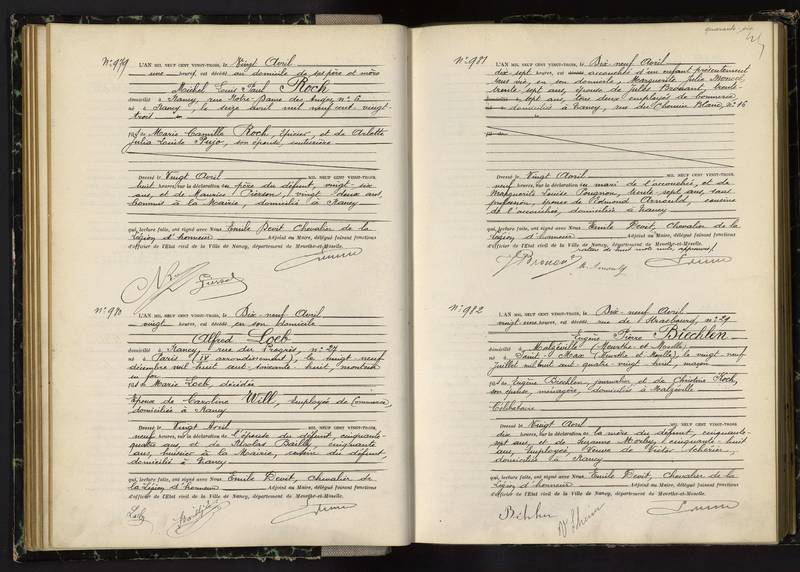 N° 979
L'AN MIL NEUF CENT VINGT-TROIS, le Vingt Avril
une heure, est décédé au domicile de ses père et mère
Michel Louis Paul Roch
domicilié à Nancy, rue Notre Dame des Anges, n° 6
né à Nancy, le seize avril mil neuf cent vingt-
trois
fils de Marie Camille Roch, épicier, et de Arlette
Julia Louise Pujo, son épouse, couturière
Dressé le Vingt Avril MIL NEUF CENT VINGT-TROIS,
huit heures, sur la déclaration du père du défunt, vingt-six
ans, et de Maurice Pierson, vingt-deux ans,
commis à la Mairie, domiciliés à Nancy
qui, lecture faite, ont signé avec Nous Emile Devit Chevalier de la
Légion d'honneur Adjoint au Maire, délégué faisant fonctions
d'officier de l'Etat civil de la Ville de Nancy, département de Meurthe-et-Moselle.
Pierson
N° 980
L'AN MIL NEUF CENT VINGT-TROIS, le Dix-neuf Avril
vingt heures, est décédé en son domicile
Alfred Loeb
domicilié à Nancy, rue du Progrès, n° 27
né à Paris (IV arrondissement), le vingt neuf
décembre mil huit cent soixante-huit, monteur
en fer
fils de Marie Loeb, décédée
Epoux de Caroline Will, employée de commerce,
domiciliée à Nancy
Dressé le Vingt Avril MIL NEUF CENT VINGT-TROIS,
neuf heures, sur la déclaration de l'épouse du défunt, cinquante-
quatre ans, et de Nicolas Bailly, cinquante
ans, huissier à la Mairie, voisin du défunt,
domiciliés à Nancy
qui, lecture faite, ont signé avec Nous Emile Devit, Chevalier de
la Légion d'honneur Adjoint au Maire, délégué faisant fonctions
d'officier de l'Etat civil de la Ville de Nancy, département de Meurthe-et-Moselle.
quarante six
N° 981
L'AN MIL NEUF CENT VINGT-TROIS, le Dix-neuf Avril
dix sept heures, est accouchée d'un enfant présentement
sans vie, en son domicile, Marguerite Julie
trente-sept ans, épouse de Jules Bronant, trente-
sept ans, tous deux employés de commerce,
domiciliés à Nancy, rue du Chemin Blanc, n° 16
Dressé le Vingt Avril MIL NEUF CENT VINGT-TROIS,
neuf heures, sur la déclaration du mari de l'accouchée, et de
Marguerite Louise Pougnon, trente-sept ans, sans
profession, épouse de Edmond Arnould, cousine
de l'accouchée, domiciliée à Nancy
qui, lecture faite, ont signé avec Nous Emile Devit, Chevalier de la
Légion d'honneur Adjoint au Maire, délégué faisant fonctions
d'officier de l'Etat civil de la Ville de Nancy, département de Meurthe-et-Moselle.
rature de huit mots nuls, approuvée
N° 982
L'AN MIL NEUF CENT VINGT-TROIS, le Dix-neuf Avril
vingt-une heures, est décédé rue de Strasbourg, n° 21
Eugène Pierre Biechlen
domicilié à Malzéville (Meurthe et Moselle)
né à Saint-Max (Meurthe et Moselle), le vingt neuf
juillet mil huit cent quatre-vingt huit, maçon
fils de Eugène Biechlen, journalier et de Christine Koch,
son épouse, ménagère, domiciliés à Malzéville
Célibataire
Dressé le Vingt Avril MIL NEUF CENT VINGT-TROIS,
dix heures, sur la déclaration de la mère du défunt, cinquante-
sept ans, et de Suzanne cinquante-huit
ans, employée, Veuve de Victor Scherier,
domiciliée à Nancy
qui, lecture faite, ont signé avec Nous Emile Devit, Chevalier de la
Légion d'honneur Adjoint au Maire, délégué faisant fonctions
d'officier de l'Etat civil de la Ville de Nancy, département de Meurthe-et-Moselle.